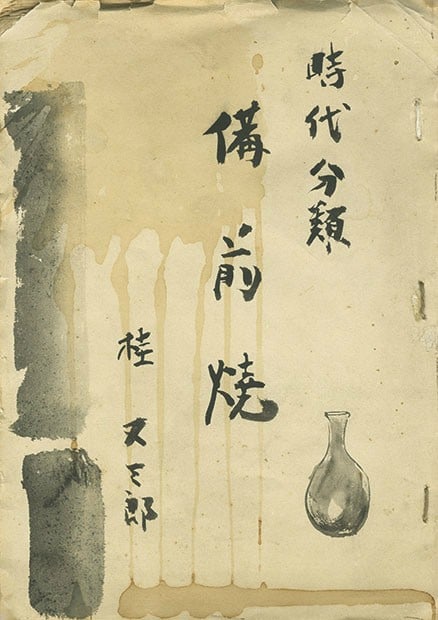 時代分類
備前燒
桂又三郎